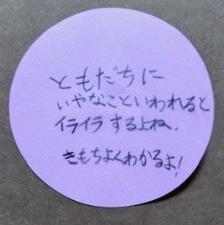 ともだちに
いやなこといわれると
イライラするよね.
きもちよくわかるよ!